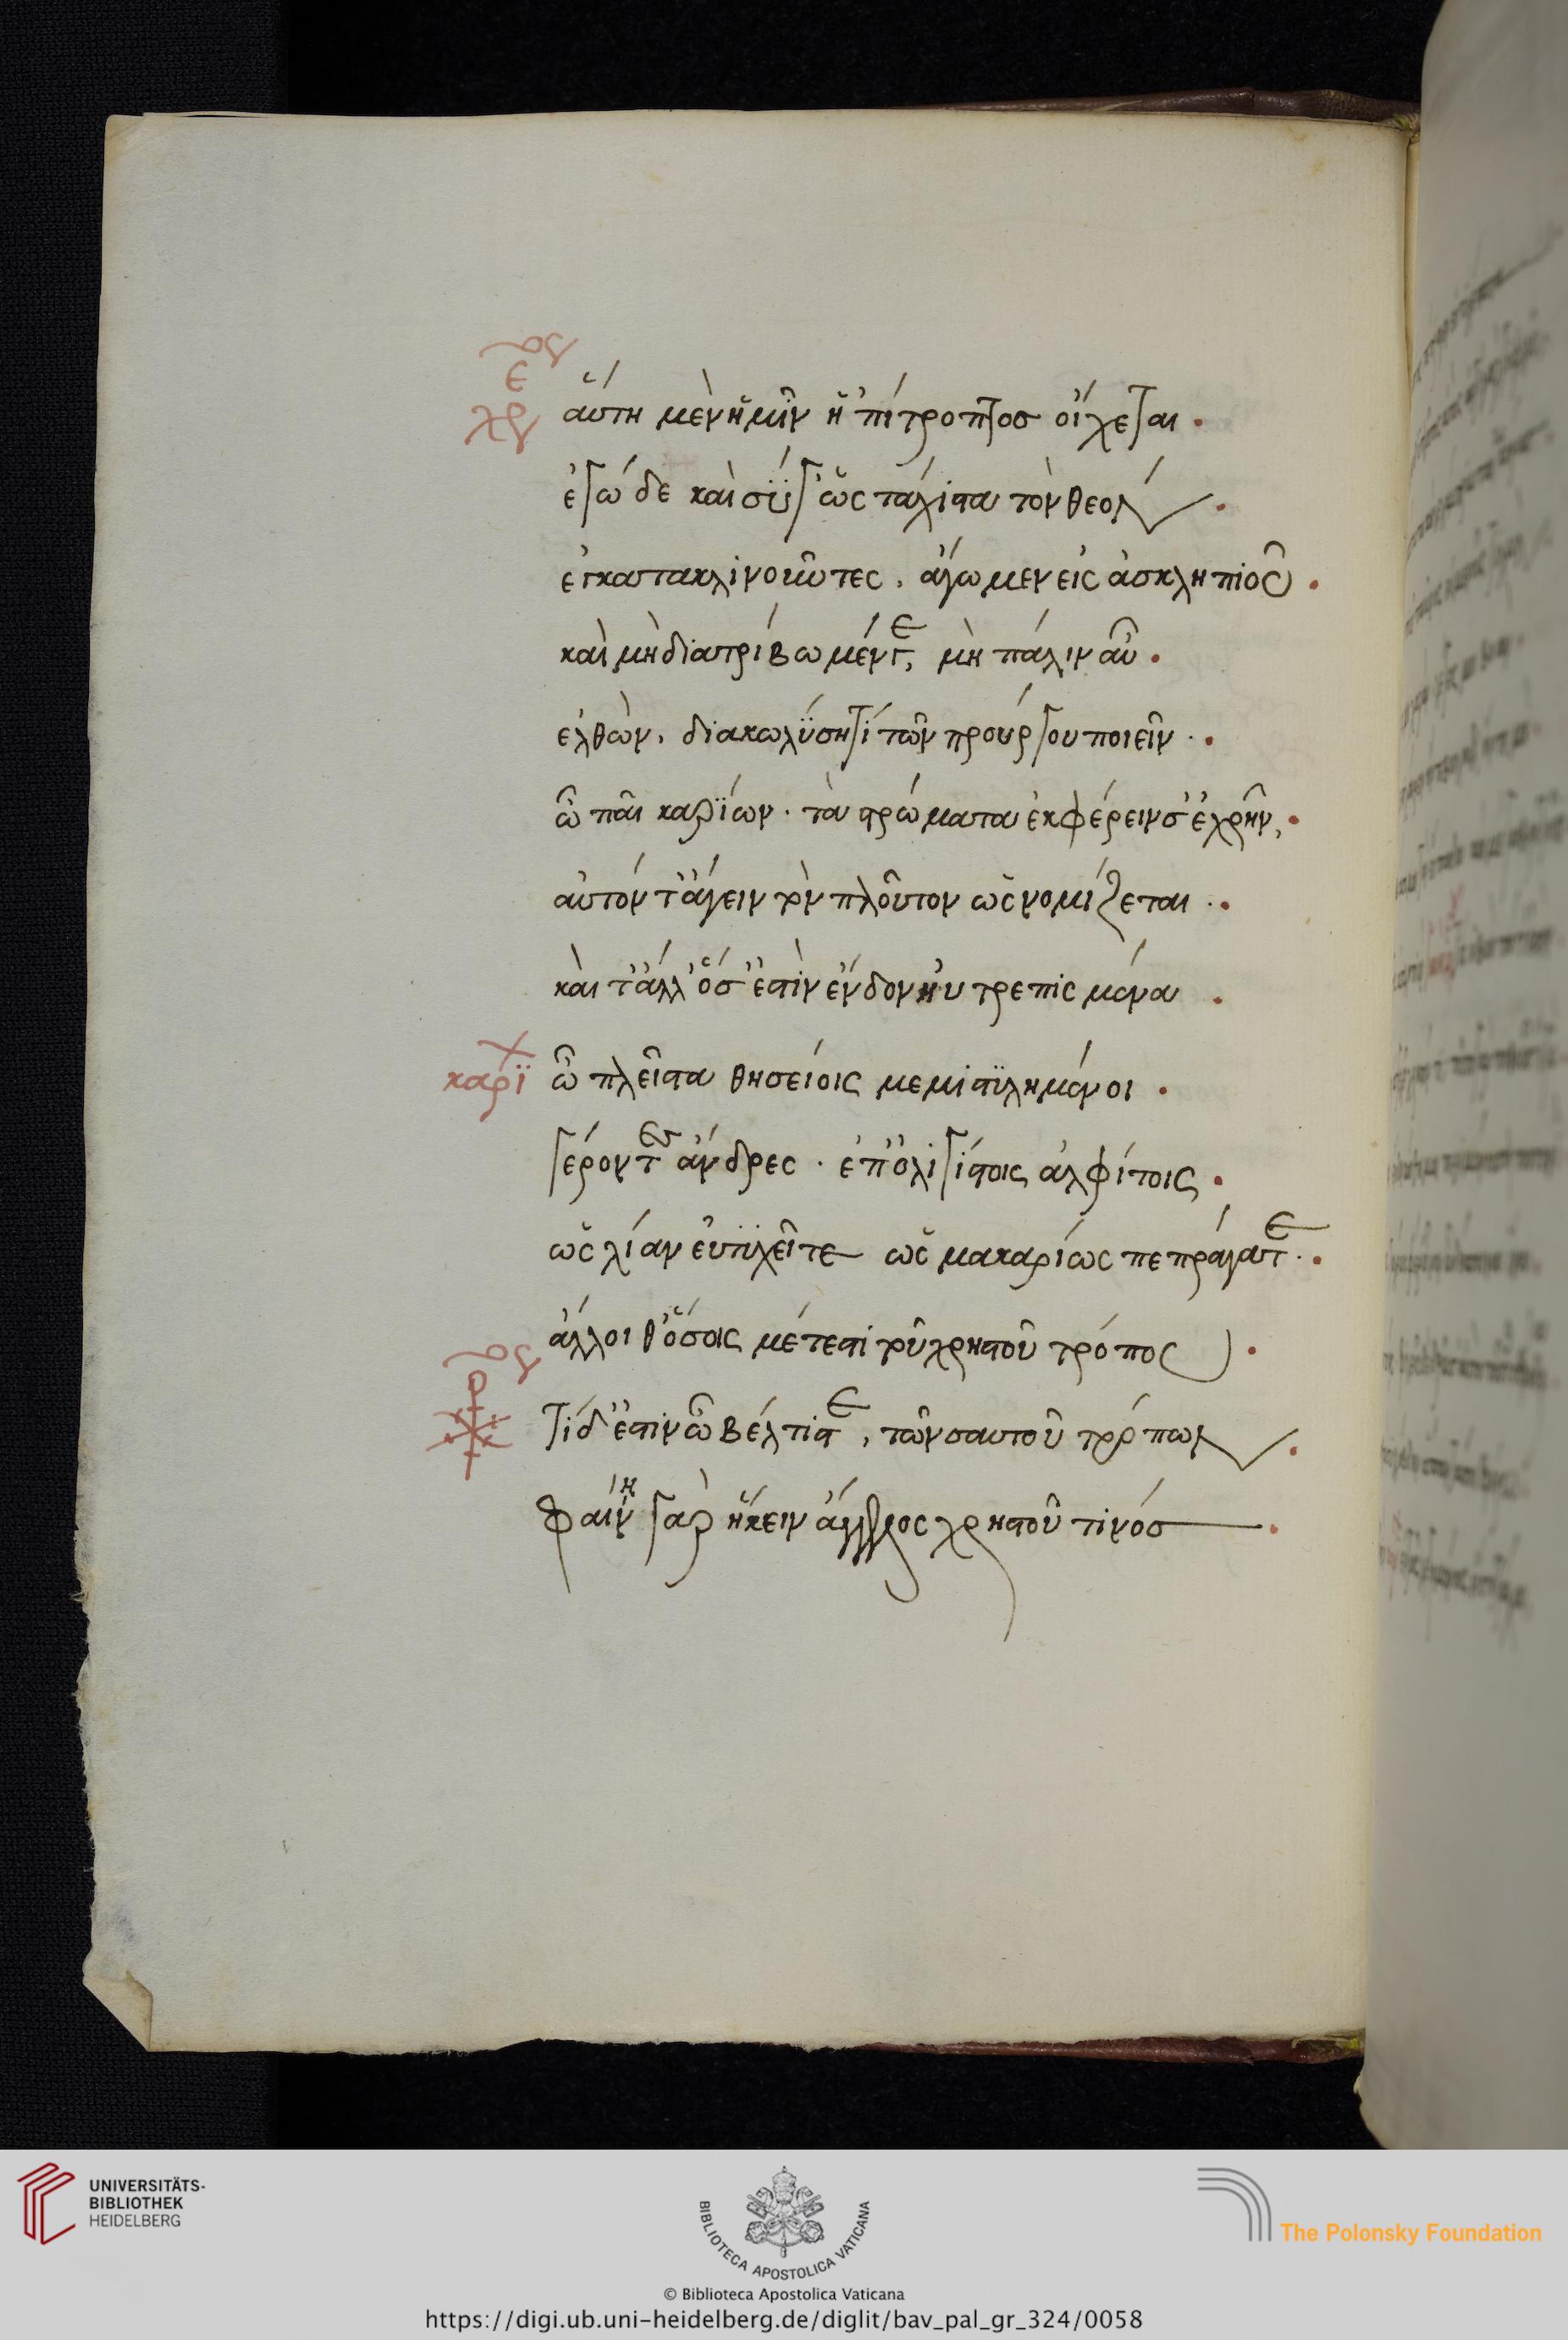 χρε αὕτη μὲν ἡμῖν ἡ ᾽πίτροπτος οἴχεται.
ἐγώ δε καὶ σύ γ᾽ ὡς τάχιστα τὸν θεόν.
ἐγκατακλινοῦντες, ἄγωμεν εἰς ἀσκληπιοῦ.
καὶ μὴ διατρίβωμέν γε, μὴ πάλιν αὖ.
ἐλθὼν, διακωλύση τί τῶν προύργου ποιεῖν.
ὦ παῖ καρίων· τὰ στρώματα ἐκφέρειν σ᾽ ἐχρῆν,
αὐτόν τ᾽ ἄγειν τὸν πλοῦτον ὡς νομίζεται.
καὶ τ᾽ ἄλλ᾽ ὅσ᾽ ἐστὶν ἔνδον ηὐτρεπισμένα.
καρί ὦ πλεῖστα θησείοις μεμιστυλημένοι.
γέροντες ἄνδρες· ἐπ᾽ ὀλιγίστοις ἀλφίτοις.
ὡς λίαν εὐτυχεῖτε ὡς μακαρίως πεπράγατε.
ἄλλοι θ᾽ ὅσοις μέτεστι τοῦ χρηστοῦ τρόπου.
τί δ᾽ ἐστὶν ὦ βέλτιστε, τῶν σαυτοῦ τρόπων.
φαίνη γὰρ ἥκειν ἄγγελος χρηστοῦ τινός.
UNIVERSITÄTS-
BIBLIOTHEK
HEIDELBERG
BIBLIOTECA APOSTOLICA VATICANA
The Polonsky Foundation
© Biblioteca Apostolica Vaticana
https://digi.ub.uni-heidelberg.de/diglit/bav_pal_gr_324/0058